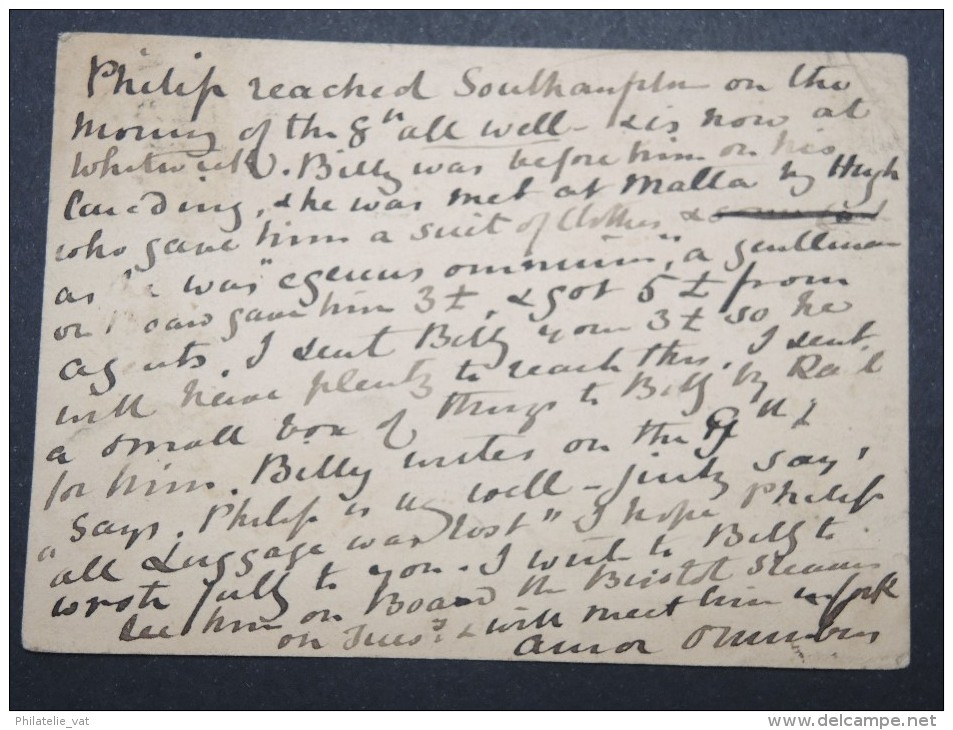 Philip reached Southampton on the
morning of the 8th all well - & is now at
. Billy was before him on his
landing, & he was met at Malta by Hugh
who gave him a suit of Clothes &
as he was "egenus omnium", a gentleman
on Board gave him 3£, & got 5£ from
agents. I sent Billy your 3£ so he
will have plenty to reach this, I sent
a small box of things to Billy by Rail
for him. Billy writes on the 9th &
says, Philip is well - Jinty says
"all Luggage was lost" I hope Philip
wrote fully to you. I wish to Billy to
see him on Board the Bristol Steamer
on Tues: & will meet him in Cork
amor omnibus
Philatelie_vat
www.delcampe.net